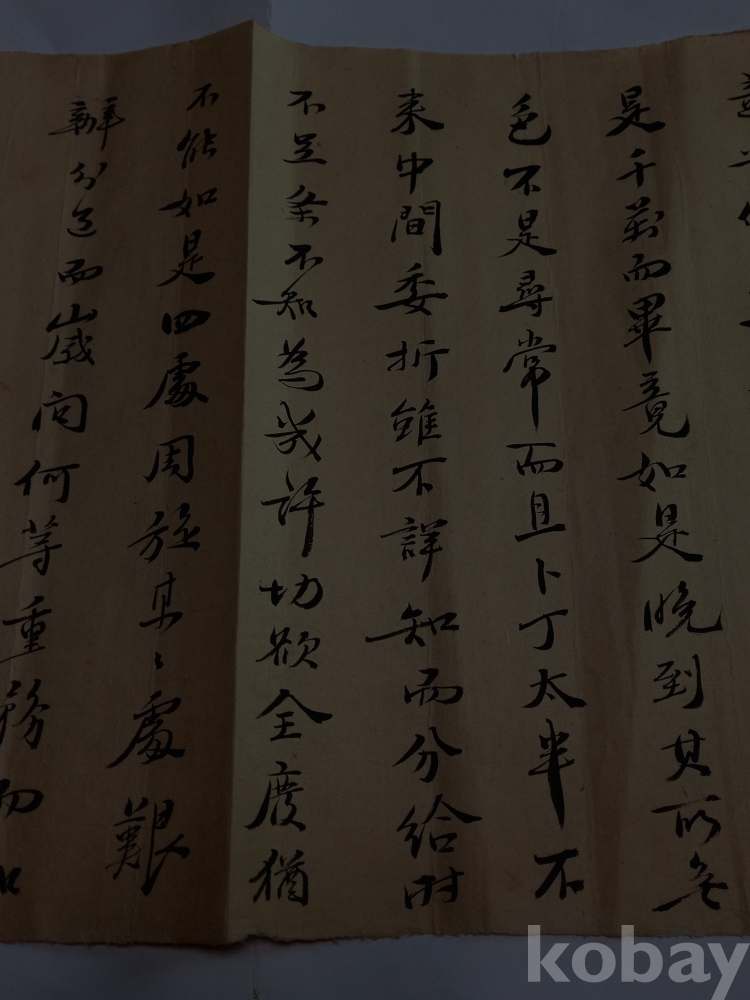 是千萬而畢竟如是晚到其所無
色不是尋常而且卜丁太半不
来中間委折雖不詳知而分給時
不足条不知為幾許切欲全度猶
不能如是四處周旋某々處艱
辦分送而歲向何等重務而
kobay